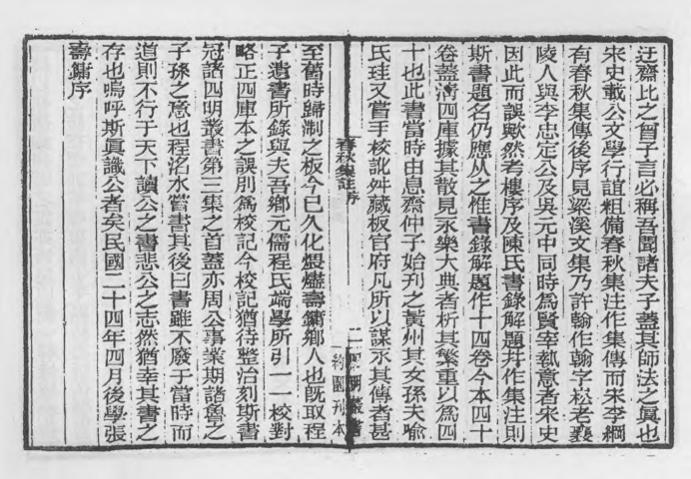 迂齋比之曾子言必稱吾聞諸夫子蓋其師法之眞也
宋史載公文學行誼粗備春秋集注作集傳而宋李綱
有春秋集傳後序見梁溪文集乃許翰作翰字松老襄
陵人與李忠定公及吳元中同時爲賢宰執意者宋史
因此而誤歟然考樓序及陳氏書錄解題幷作集注則
斯書題名仍應从之惟書錄解題作十四卷今本四十
卷蓋淸四庫據其散見永樂大典者析其繁重以爲四
十也此書當時由息齋仲子始刊之黃州其女孫夫喩
氏珪又嘗手校訛舛藏板官府凡所以謀永其傳者甚
春秋集註序
二
四明叢書
約園刊本
至舊時歸制之板今已久化煨燼壽鏞鄉人也旣取程
子遺書所錄與夫吾鄉元儒程氏端學所引一一校對
略正四庫本之誤別爲校記今校記猶待整治刻斯書
冠諸四明叢書第三集之首蓋亦周公事業期諸魯之
子孫之意也程洺水嘗書其後曰書雖不廢于當時而
道則不行于天下讀公之書悲公之志然猶幸其書之
存也嗚呼斯眞識公者矣民國二十四年四月後學張
壽鏞序